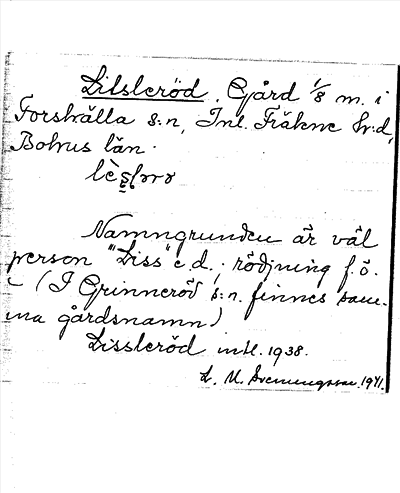 Lilsleröd. Gård 1/8 m. i
Forshälla s:n, Inl. Fräkne hr:d,
Bohus län.
Namngrunden är väl
person "Liss" e.d.; rödjning f.ö.
– (I Grinneröd s:n. finnes sam-
ma gårdsnamn)
Lissleröd mtl. 1938.
1941.